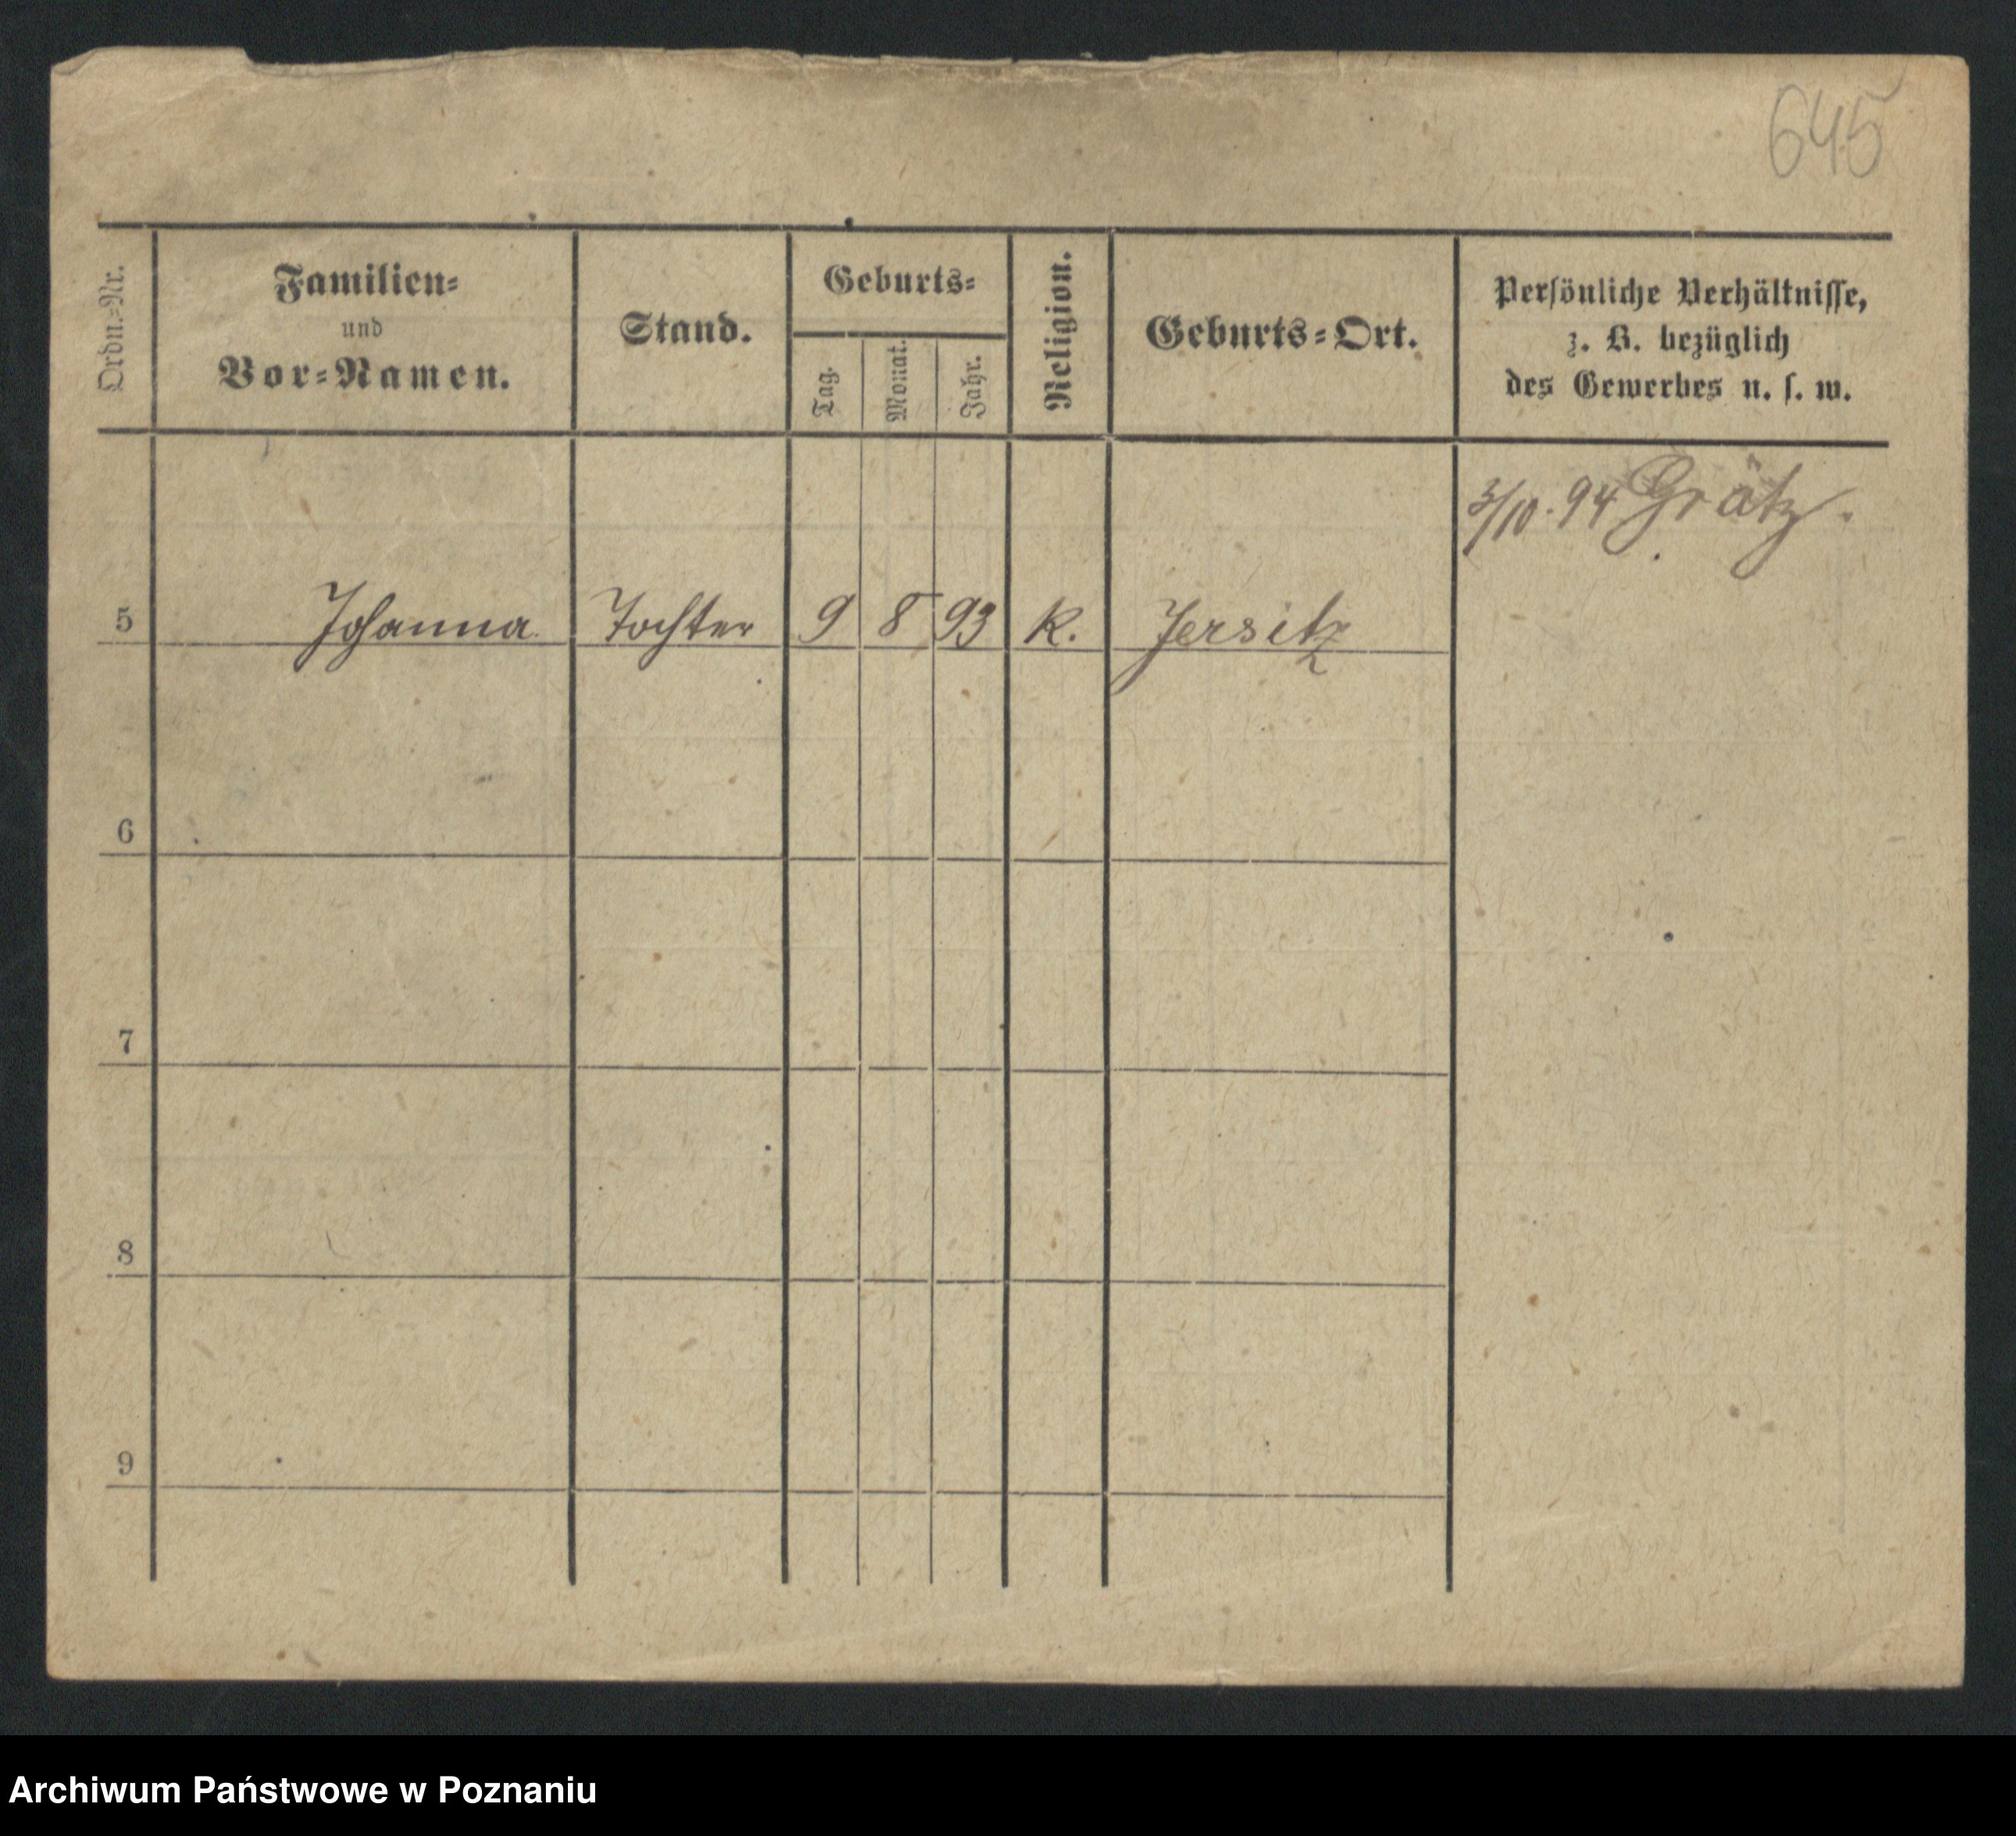 645
Ordn.-Nr.
Familien-
und
Vor-Namen.
Stand.
Geburts-
Tag.
Monat.
Jahr.
Religion.
Geburts-Ort.
Persönliche Verhältnisse,
z. B. bezüglich
des Gewerbes u. s. w.
3/10. 94 Grätz.
5 Johanna Tochter 9 8 93 K. Jersitz
6
7
8
9
Archiwum Państwowe w Poznaniu